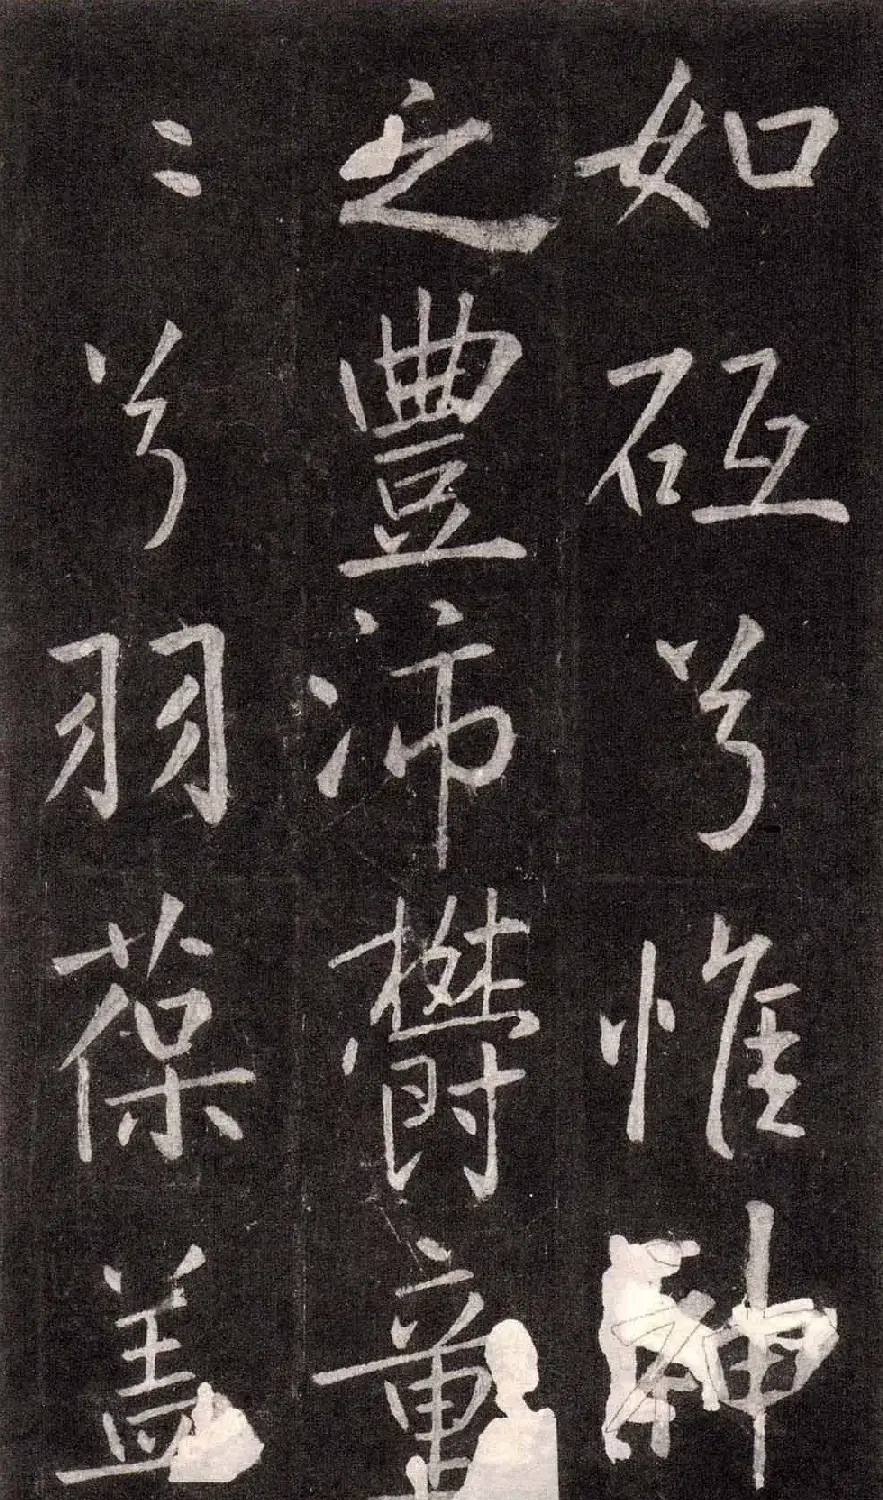 如砥兮惟神
之豐沛鬱童
〻兮羽葆盖